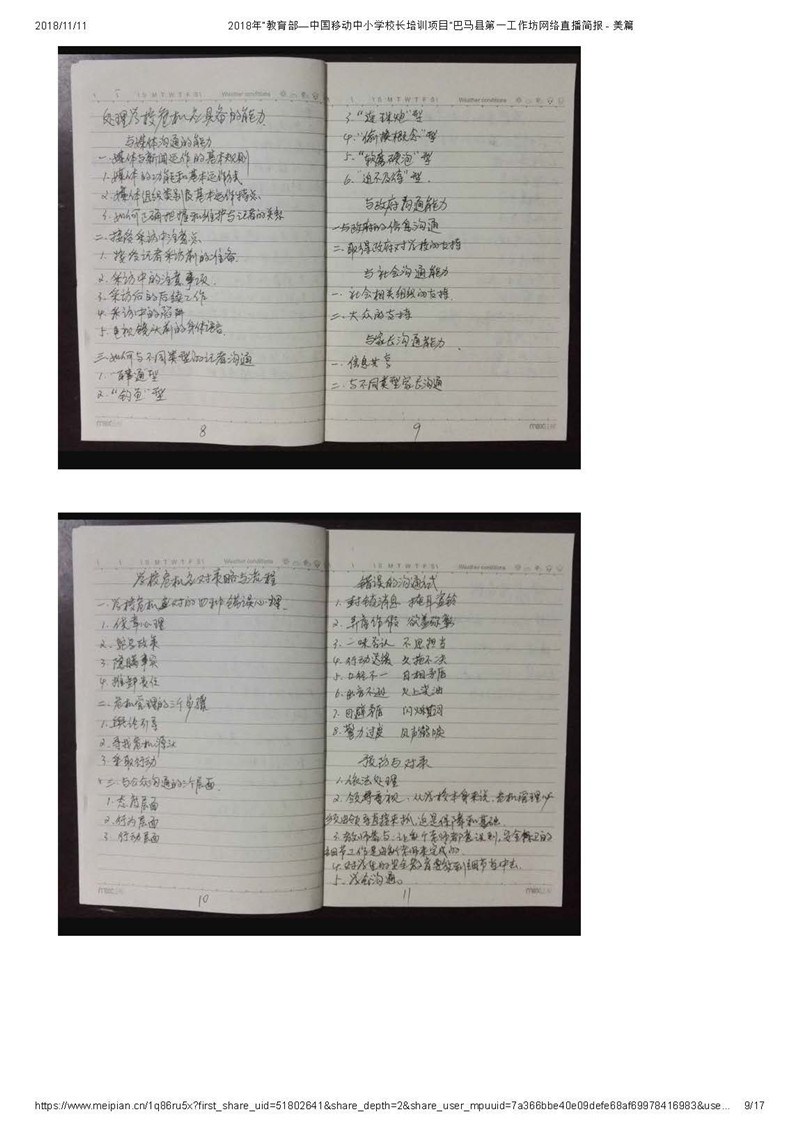 2018/11/11
2018年"教育部—中国移动中小学校长培训项目"巴马县第一工作坊网络直播简报 - 美篇
1 S M T W T F S
Weather conditions
处理学校危机应具备的能力
与媒体沟通的能力
一.媒体与新闻运作的基本规则
1.媒体的功能和基本运作方式
2.媒体组织类别及基本运作特点
3.如何正确把握和维护与记者的关系
二.接受采访书注意点
1.接受记者采访前的准备
2.采访中的注意事项
3.采访后的后续工作
4.采访中的陷阱
5.电视镜头前的身体语言
三.如何与不同类型的记者沟通
1.百事通型
2."钓鱼"型
8
1 S M T W T F S
Weather conditions
3."连珠炮"型
4."偷换概念"型
5."软磨硬泡"型
6."迫不及待"型
与政府沟通能力
一与政府的信息沟通
二.取得政府对学校的支持
与社会沟通能力
一.社会相关组织的支持
二.大众的支持
与家长沟通能力
一.信息共享
二.与不同类型家长沟通
9
1 S M T W T F S
Weather conditions
学校危机应对策略与流程
一.学校危机应对的四种错误心理
1.侥幸心理
2.鸵鸟政策
3.隐瞒事实
4.推卸责任
二.危机管理的三个步骤
1.舆论引导
2.寻找危机源头
3.采取行动
三.与公众沟通的三个层面
1.态度层面
2.行为层面
3.行动层面
10
1 S M T W T F S
Weather conditions
错误的沟通式
1.封锁消息 掩耳盗铃
2.弄虚作假 欲盖弥彰
3.一味否认 不思担当
4.行动迟缓 久拖不决
5.口径不一 自相矛盾
6. 火上浇油
7.回避矛盾 闪烁
8.警力过度
预防与对策
1.依法处理
2.领导重视,从学校本身来说,危机管理
领导直接来抓,这是保障和基础
3.教师参与,让每个老师都意识到,安全的
细节工作是由老师来完成的
4.对学生的安全教育要到细节当中去
5.沟通。
11
https://www.meipian.cn/1q86ru5x?first_share_uid=51802641&share_depth=2&share_user_mpuuid=7a366bbe40e09defe68af69978416983&use...
9/17